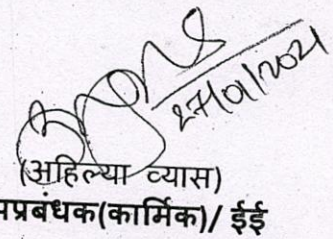 27/01/2021
(अहिल्या व्यास)
पप्रबंधक(कार्मिक)/ ईई